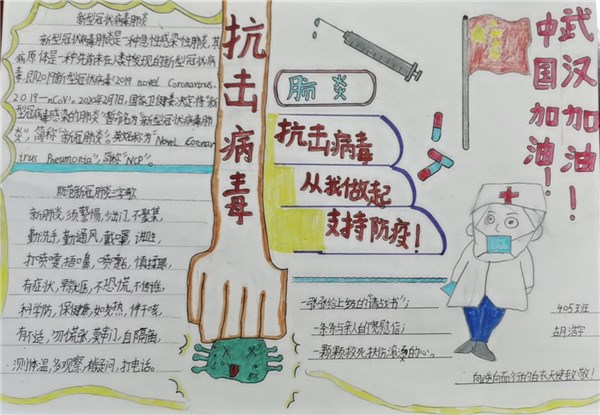 新型冠状病毒肺炎
新型冠状病毒肺炎是一种急性感染性肺炎,其
病原体是一种先前未在人类中发现的新型冠状病
毒,即2019新型冠状病毒(2019 novel Coronavirus.
2019-nCoV)。2020年2月7日,国家卫健委决定将"新型
冠状病毒感染的肺炎"暂命名为"新型冠状病毒肺
炎",简称"新冠肺炎"。英文名称为"Novel Corona
virus Pneumonia",简称"NCP"。
防控新冠肺炎三字歌
新冠肺炎,须警惕,少出门,不聚集,
勤洗手,勤通风,戴口罩,讲卫生,
打喷嚏,捂口鼻,
有症状,早就医,不恐慌,不传谣,
科学防,保健康,如发热,伴干咳,
有不适,勿慌张,莫串门,自隔离,
测体温,多观察,有疑问,打电话。
抗击病毒
肺炎
抗击病毒
从我做起
支持防疫!
武汉加油!
中国加油!
一张张给上级的"请战书";
一条条与亲人的
一颗颗救死扶伤滚烫的心。
405班
胡浩宇
向逆向而行的白衣天使致敬!